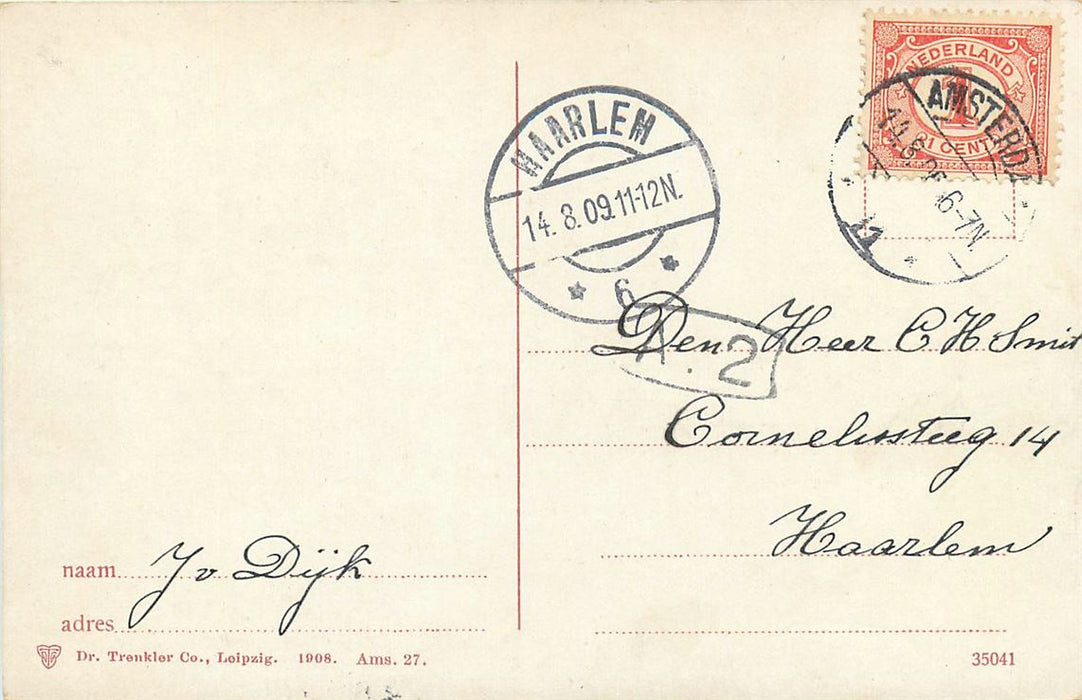 NEDERLAND
1
1 CENT
AMSTERDA
6-7N
HAARLEM
14. 8. 09. 11-12N.
6
2
Den Heer C H Smit
Cornelissteeg 14
Haarlem
naam Jv Dijk
adres
Dr. Trenkler Co., Leipzig. 1908. Ams. 27.
35041